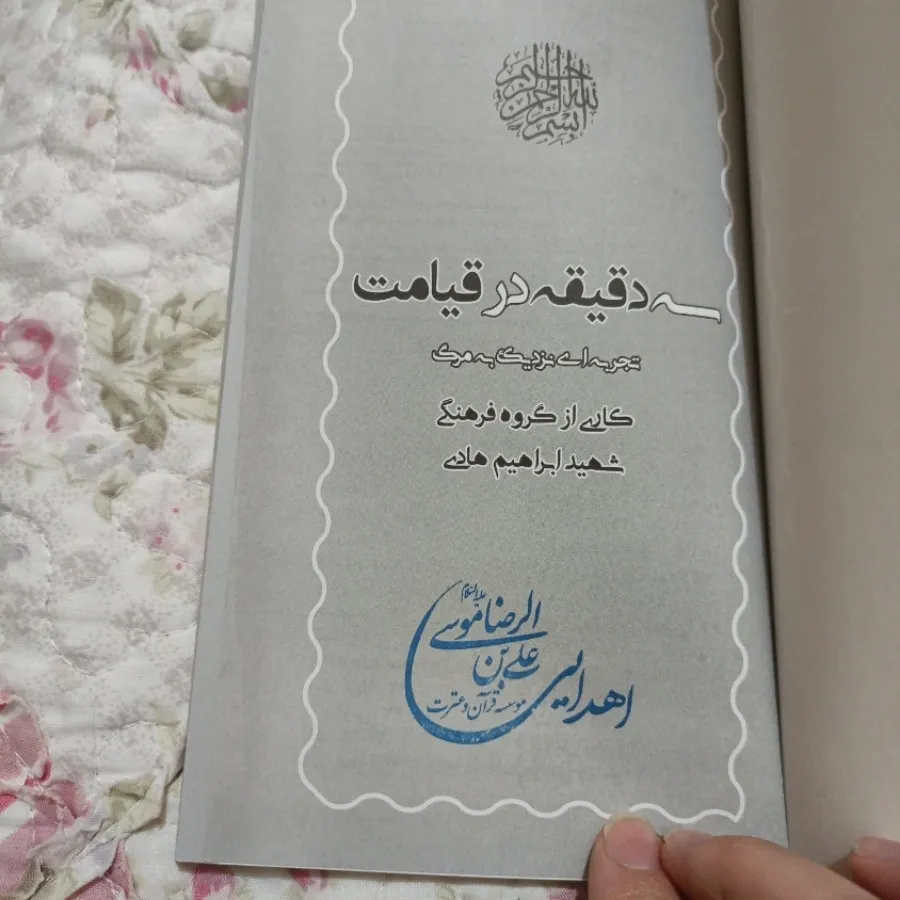 بسم الله الرحمن الرحیم
سه دقیقه در قیامت
تجربه ای نزدیک به مرگ
کاری از گروه فرهنگی
شهید ابراهیم هادی
اهدایی
موسسه قرآن و عترت
علی بن
موسی الرضا علیه السلام